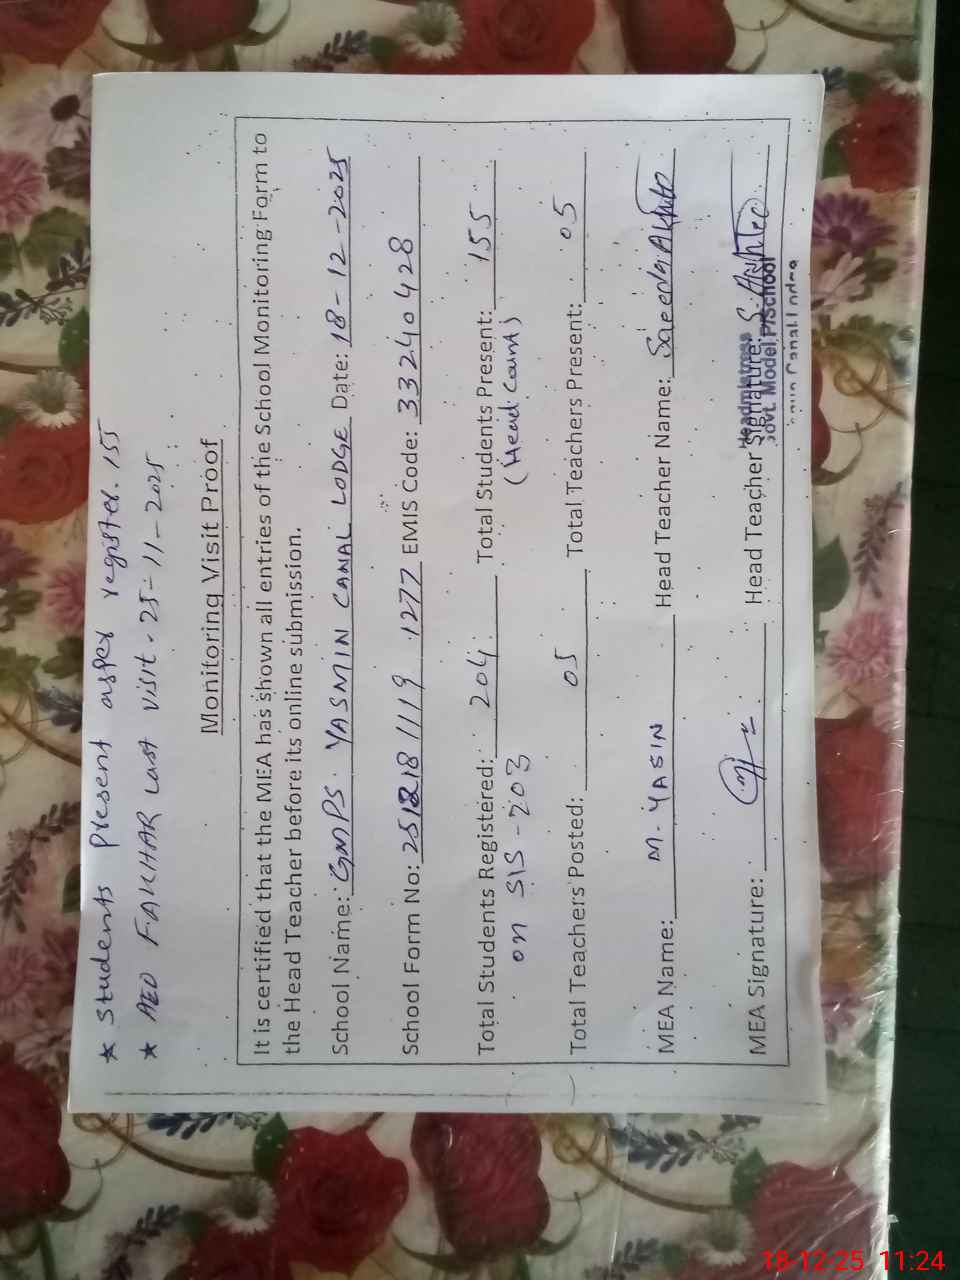 * Students Present asper register. 155
* AEO FAKHAR Last visit - 25-11-2025
Monitoring Visit Proof
It is certified that the MEA has shown all entries of the School Monitoring Form to
the Head Teacher before its online submission.
School Name: GMPS YASMIN CANAL LODGE Date: 18-12-2025
School Form No: EMIS Code: 33240428
Total Students Registered: 204 Total Students Present: 155
on SIS-203 (Head Count)
Total Teachers Posted: 05 Total Teachers Present: 05
MEA Name: M. YASIN Head Teacher Name: Saeeda Akhter
MEA Signature: Head Teacher Signature: S. Akhter
Headmistress
Govt. Model P/School
Canal Lodge
18-12-25 11:24